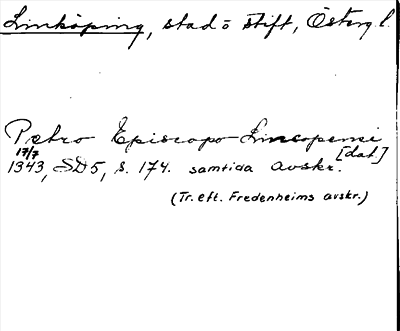 Linköping, stad o stift, Österg l.
Petro Episcopo Lincopensi
[dat]
17/7
1343, SD5, s. 174. samtida avskr.
(Tr. eft. Fredenheims avskr.)